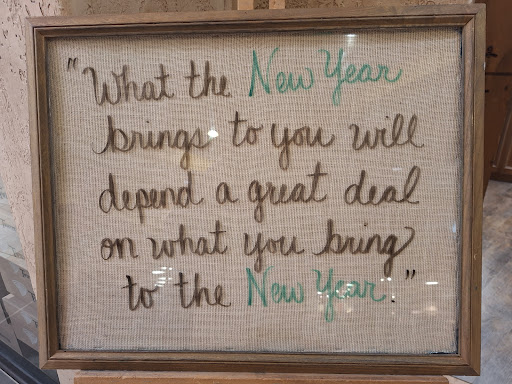 "What the New Year
brings to you will
depend a great deal
on what you bring
to the New Year."